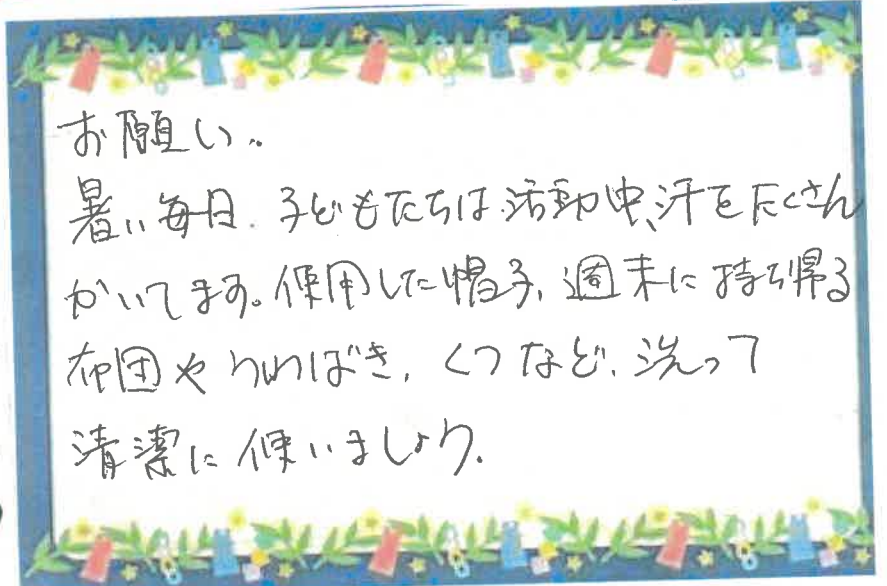 お願い。
暑い毎日、子どもたちは、活動中、汗をたくさん
かいてます。使用した帽子、週末に持ち帰る
布団やうわばき、くつなど、洗って
清潔に使いましょう。